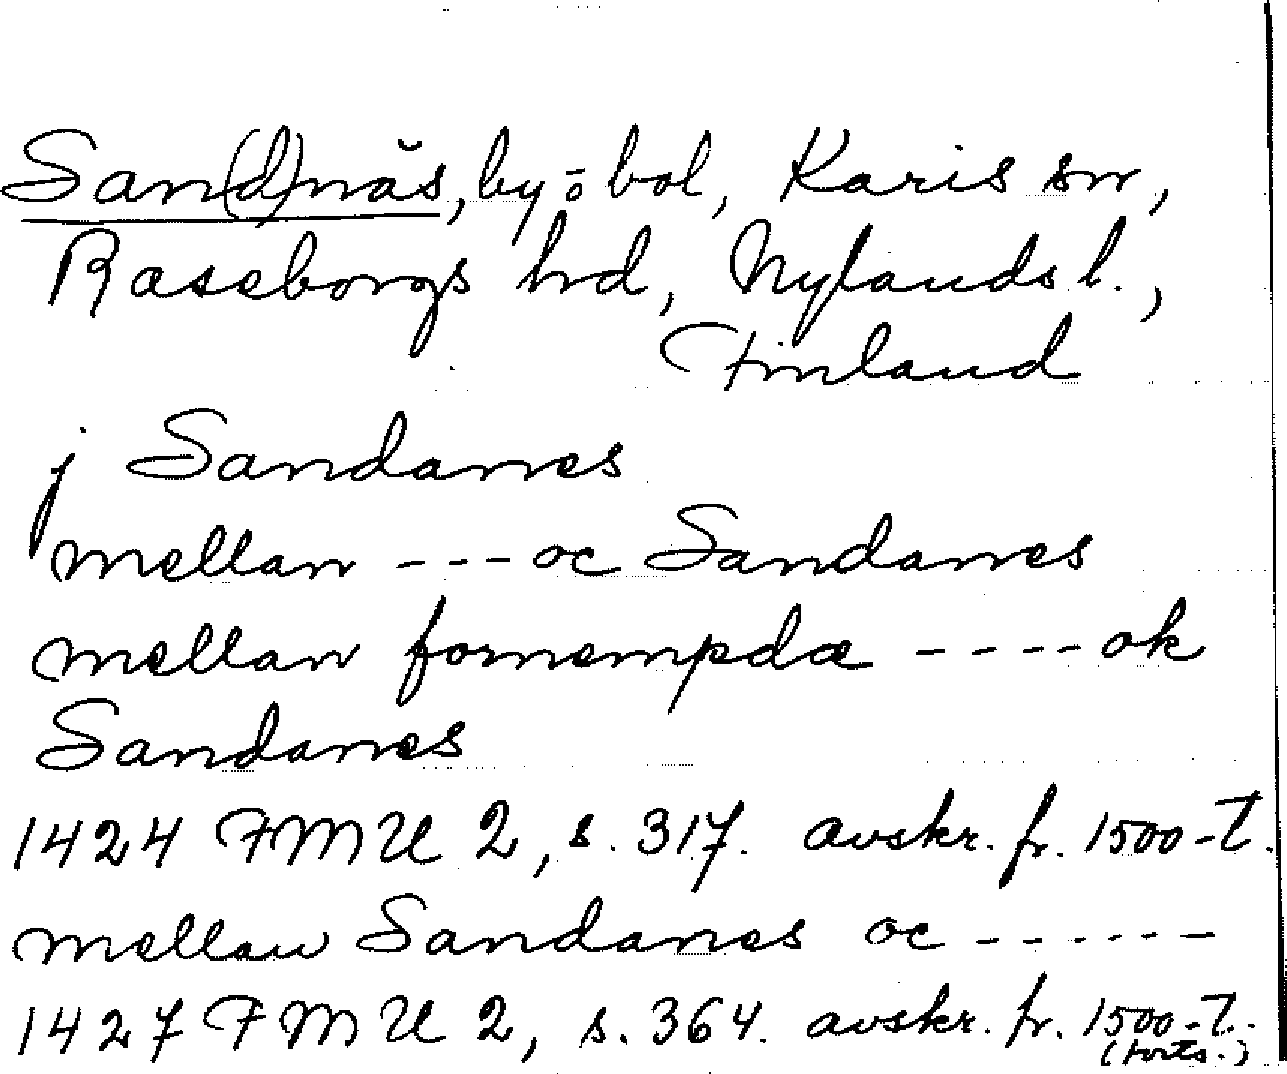 San(d)näs, by o bol, Karis sn,
Raseborgs hrd, Nylands l.,
Finland
j Sandanes
mellan --- oc Sandanes
mellan fornempdæ ---- ok
Sandanes
1424 FMU 2, s. 317. avskr. fr. 1500-t.
mellan Sandanes oc ------
1427 FMU 2, s. 364. avskr. fr. 1500-t.
(forts.)